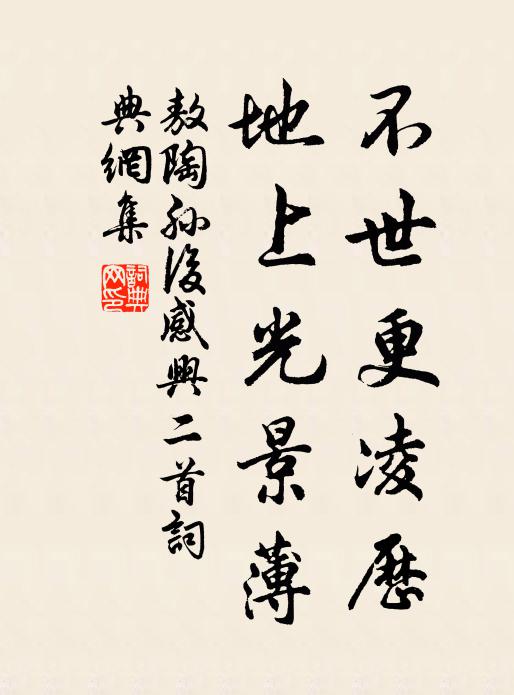 不世更凌歷
地上光景薄
敖陶孫後感興二首詞
典網集
詞典
网印